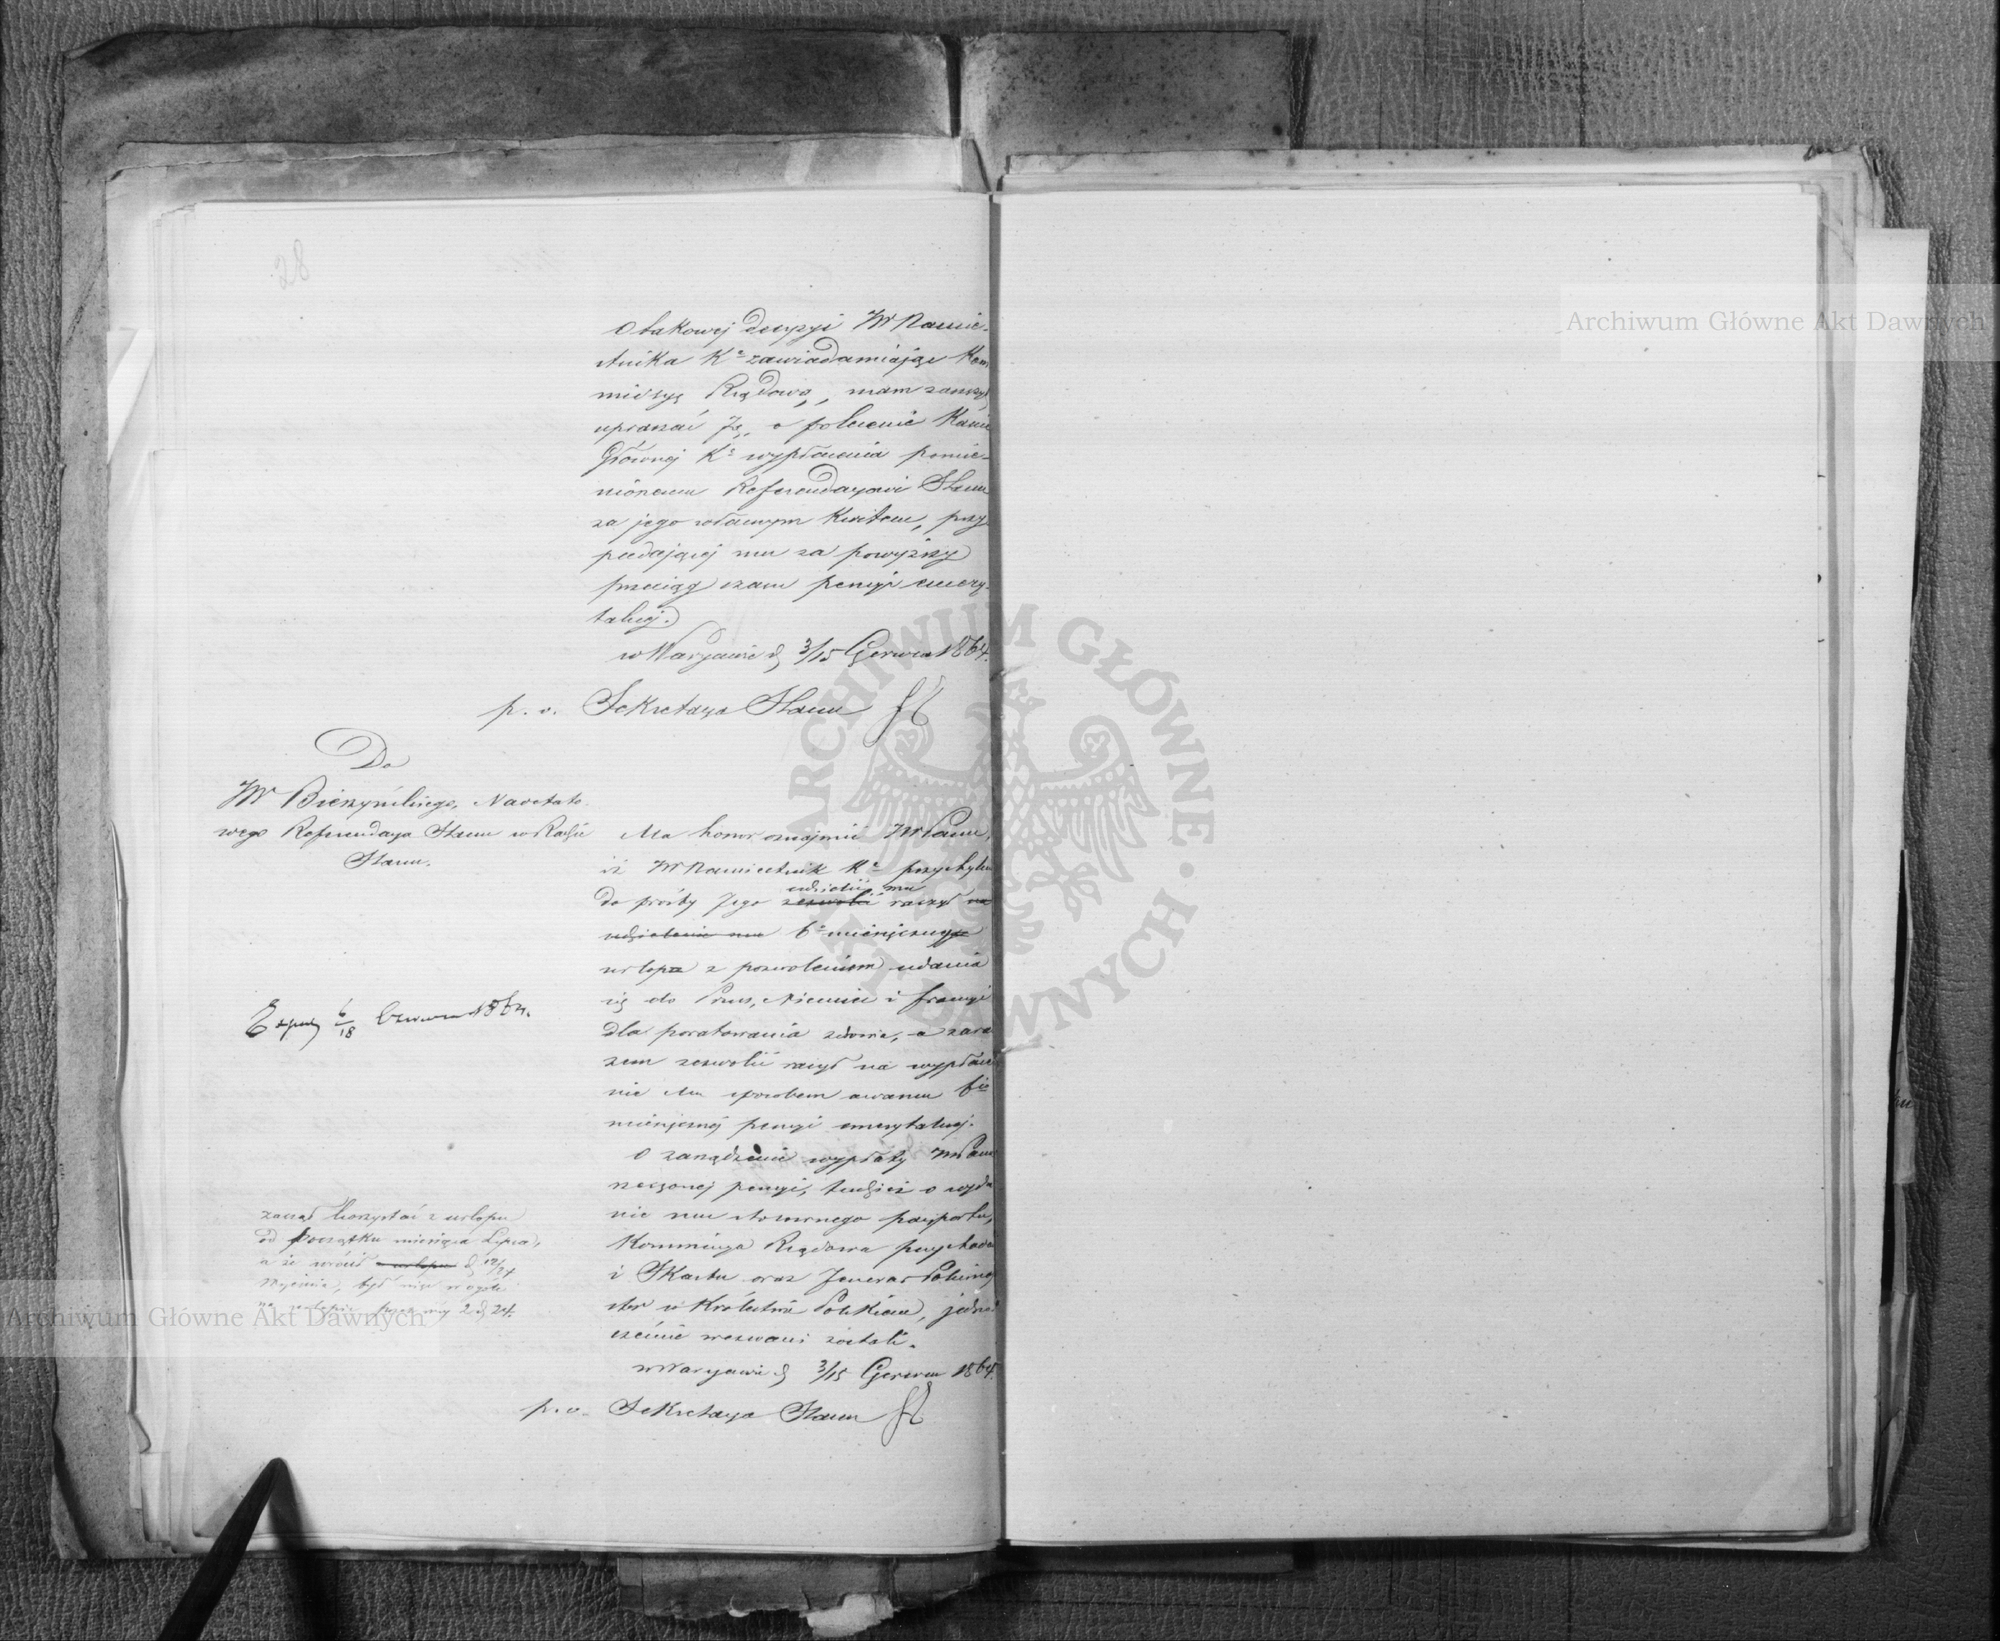 28
O takowej decyzyi JW Namie-
stnika K° zawiadamiając Kom-
missyę Rządową, mam zaszczyt
upraszać Ją, o polecenie Kassie
Głównej K° wypłacenia pomie-
nionemu Referendarzowi Stanu
za jego własnym kwitem, przy-
padającej mu za powyższy
przeciąg czasu pensyi emery-
talnej.
w Warszawie d. 3/15 Czerwca 1864.
p. o. Sekretarza Stanu
Do
JW Bieszyńskiego, Nadetato-
wego Referendarza Stanu w Radzie
Stanu.
Ma honor oznajmić JW Panu,
iż JW Namiestnik K° przychylnie
do prośby Jego zezwolić udzielić mu raczył na
udzielenie mu 6° miesięcznego
urlopu z pozwoleniem udania
się do Prus, Niemiec i Francyi
dla poratowania zdrowia, a zara-
zem zezwolić raczył na wypłace-
nie Mu sposobem awansu 6cio
miesięcznej pensyi emerytalnej.
O zarządzenie wypłaty JW Panu
rzeczonej pensyi, tudzież o wyda-
nie mu stosownego paszportu,
Kommissya Rządowa Przychodów
i Skarbu oraz Jenerał Policmaj-
ster w Królestwie Polskiem, jedno-
cześnie wezwani zostali.
w Warszawie d. 3/15 Czerwca 1864.
p. o. Sekretarza Stanu
Exped. 6/18 Czerwca 1864.
zaczął korzystać z urlopu
od początku miesiąca Lipca,
a że wrócił z urlopu d. 12/24
Stycznia, był więc w ogóle
na urlopie 2 d. 24.
Archiwum Główne Akt Dawnych
Archiwum Główne Akt Dawnych
ARCHIWUM GŁÓWNE AKT DAWNYCH